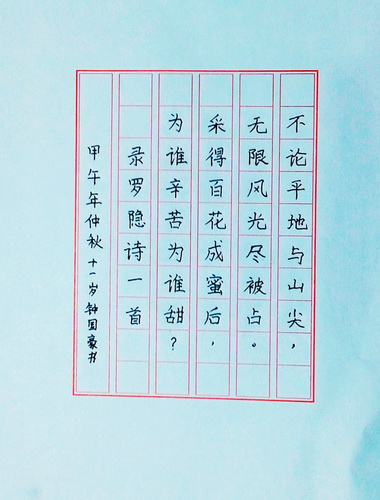 不论平地与山尖，
无限风光尽被占。
采得百花成蜜后，
为谁辛苦为谁甜？
录罗隐诗一首
甲午年仲秋十一岁钟国豪书